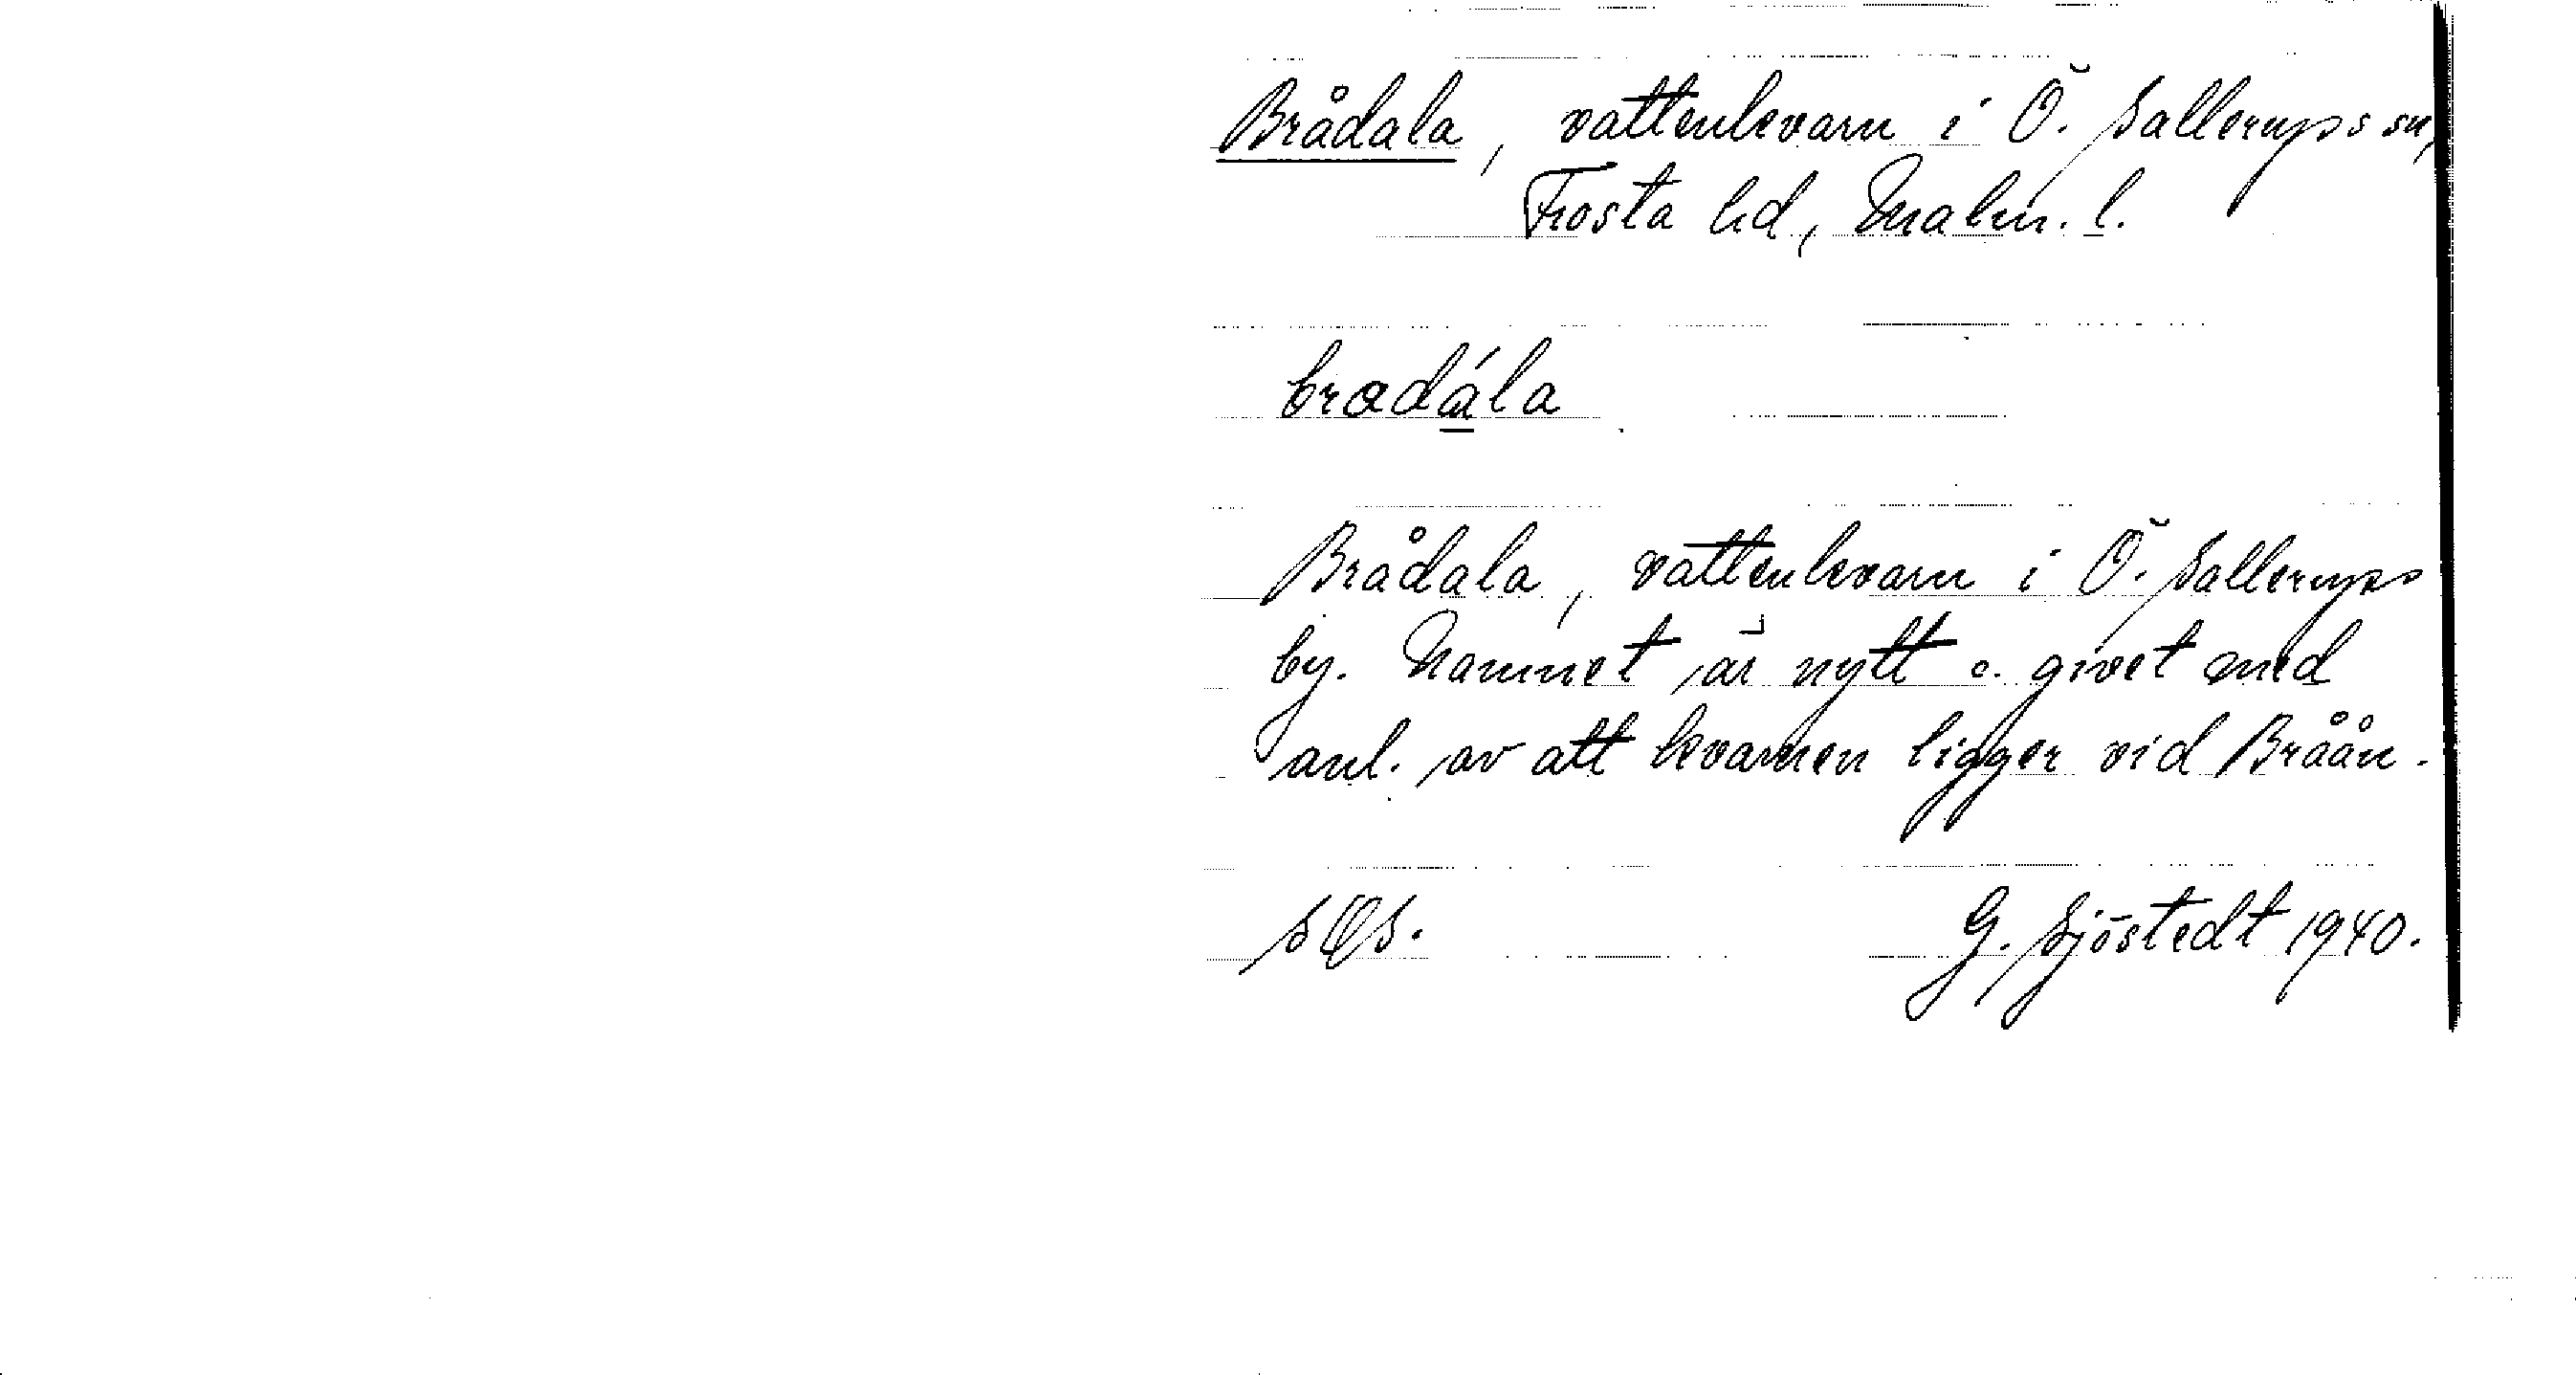 Brådala, vattenkvarn i Ö. Sallerups sn,
Frosta hd, Malm. l.
bradála
Brådala, vattenkvarn i Ö. Sallerups
by. Namnet är nytt o. givet med
anl. av att kvarnen ligger vid Bråån.
G. Sjöstedt 1940.